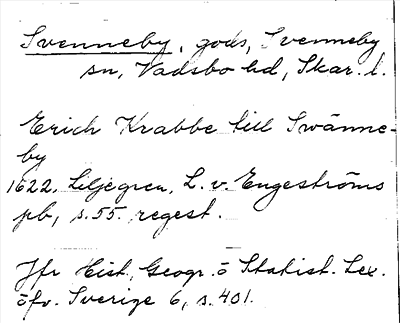 Svenneby, gods, Svenneby
sn, Vadsbo hd, Skar. l.
Erich Krabbe till Swänne-
by
1622. Liljegren, L. v. Engeströms
pb, s. 55. regest.
Jfr Hist. Geogr. o Statist. Lex.
öfv. Sverige 6, s. 401.